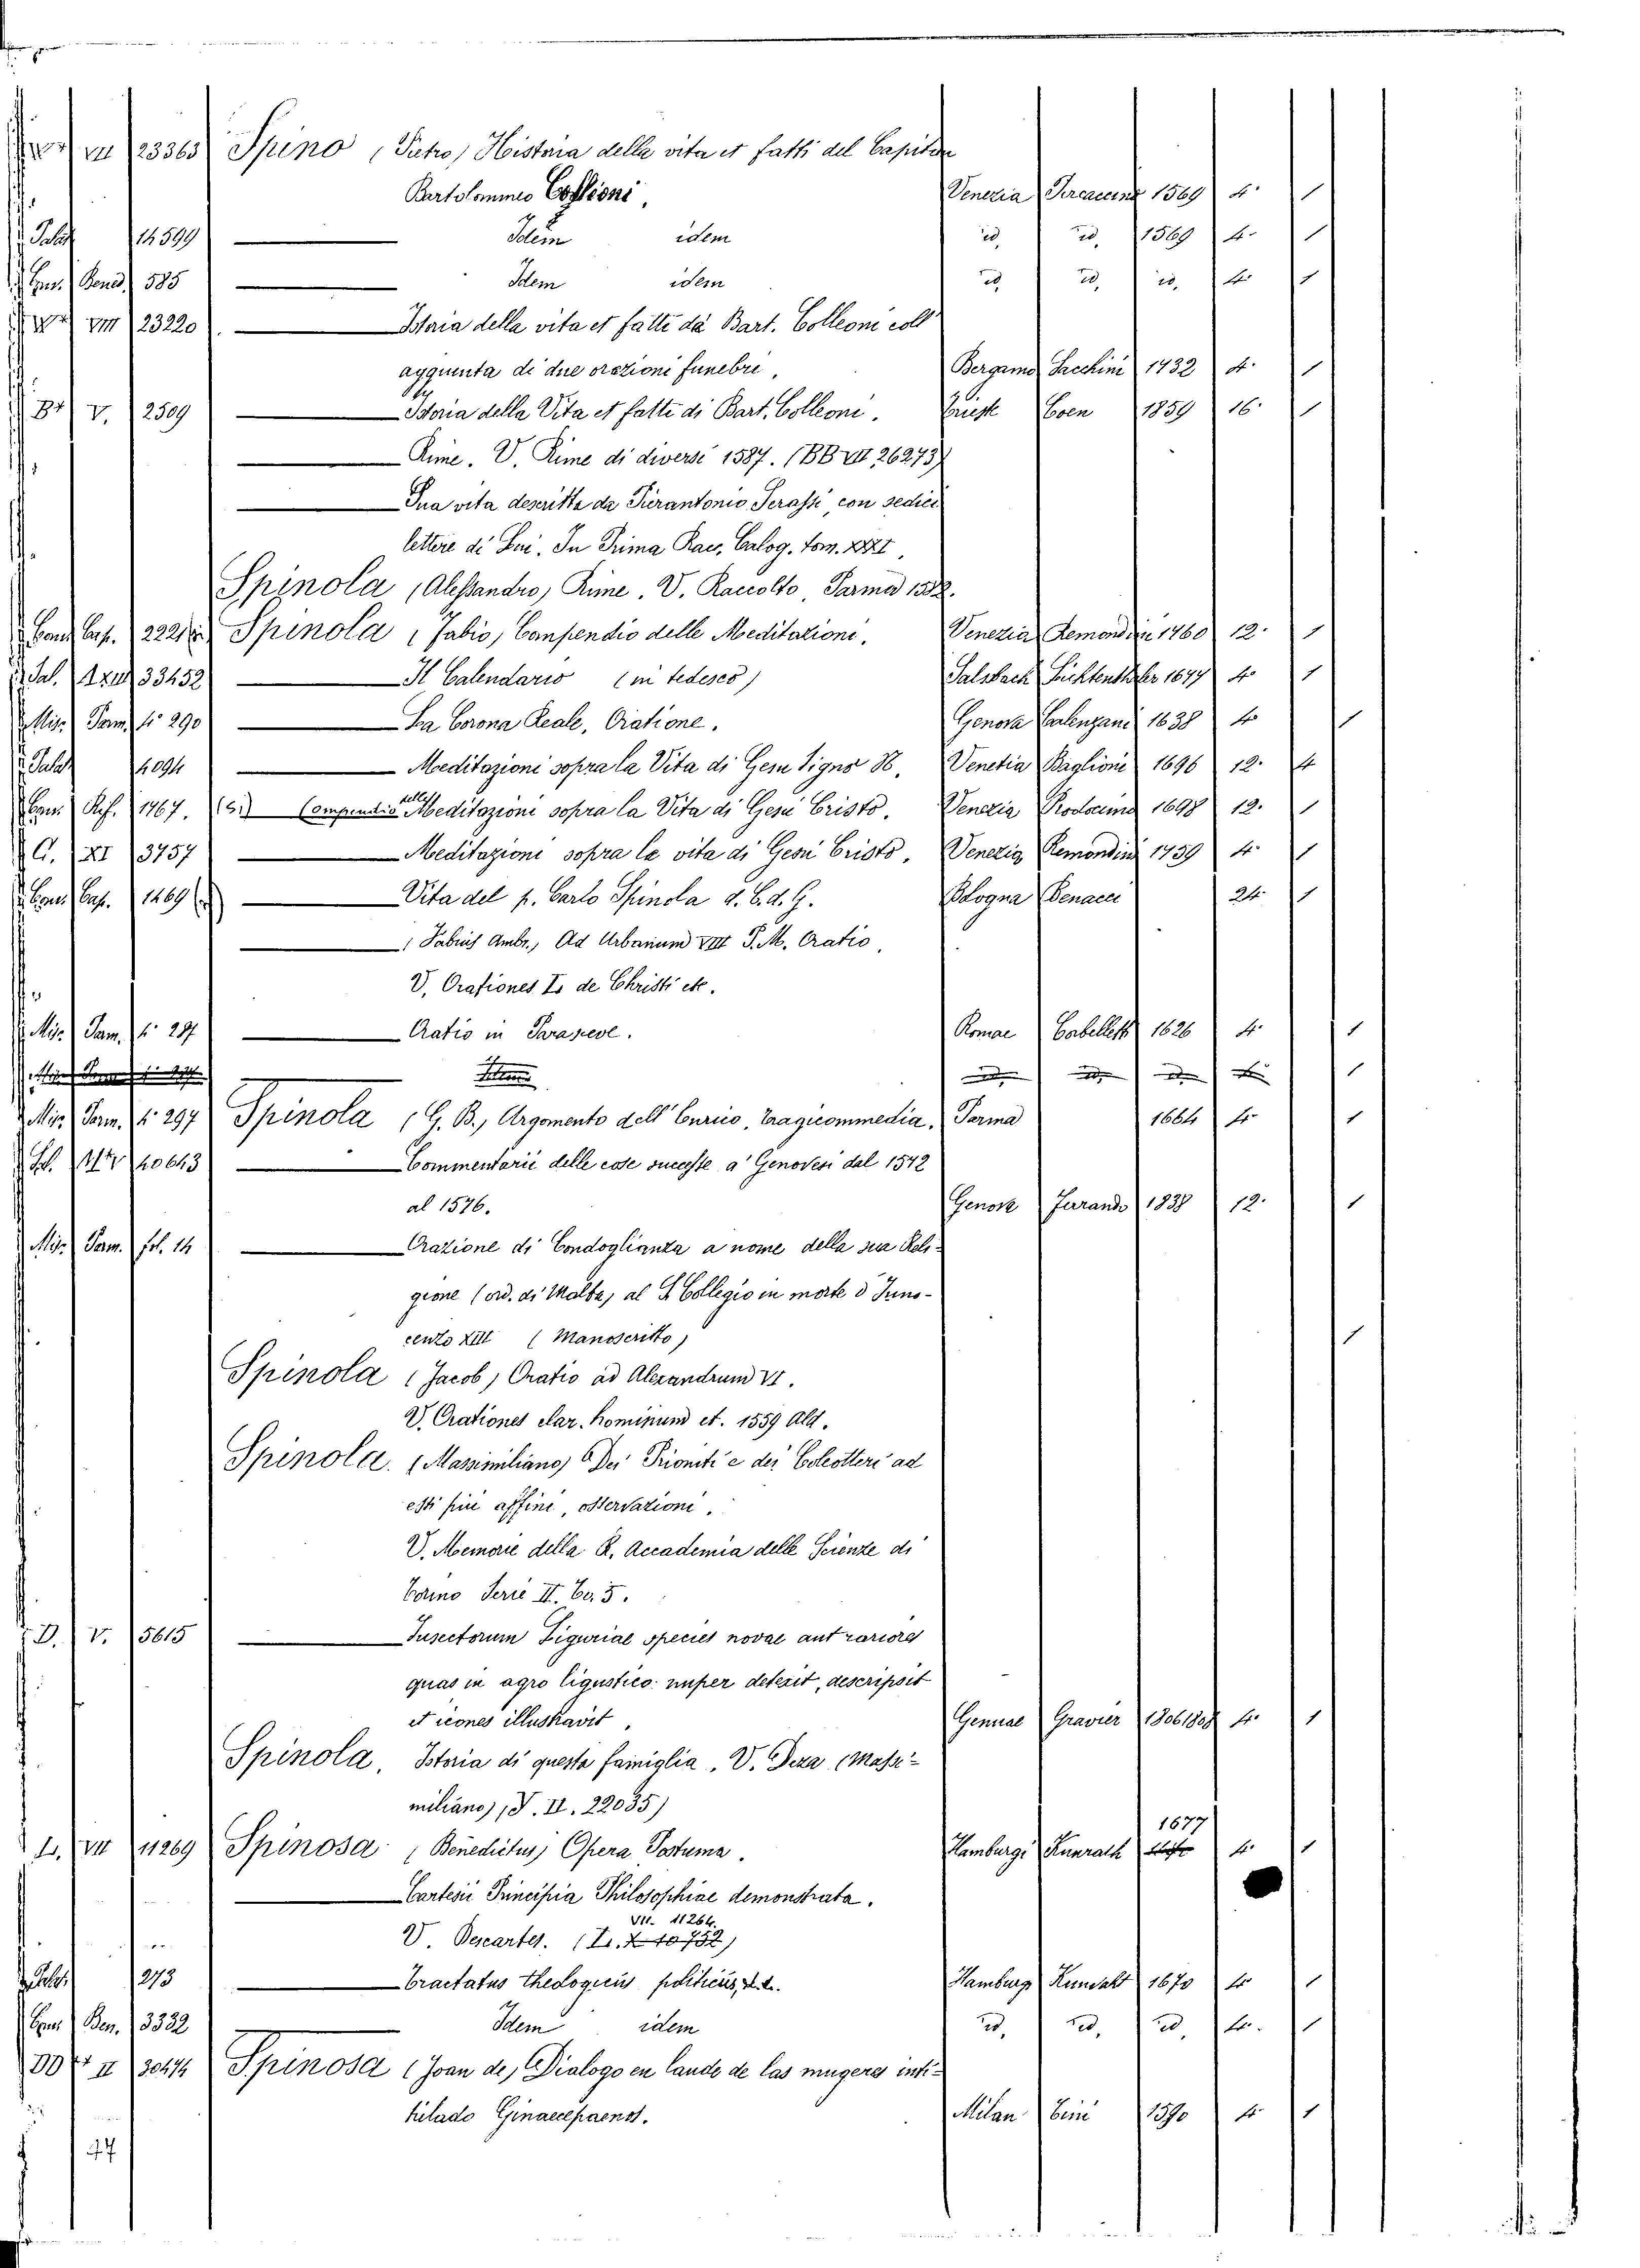 VII 23363 Spino (Pietro) Historia della vita et fatti del Capitan
Bartolommeo Coglioni, Venezia 1569 4. 1
Palat 14599 Idem idem id. id. 1569 4. 1
Bened. 585 Idem idem id. id. id. 4. 1
VIII 23220 Istoria della vita et fatti da Bart. Colleoni coll'
aggiunta di due orazioni funebri, Bergamo 1732 4. 1
V. 2509 Istoria della Vita et fatti di Bart. Colleoni. Trieste Coen 1859 16. 1
Rime. V. Rime di diversi 1587. (BB VII 26273)
Sua vita descritta da Pierantonio Serassi, con sedici
lettere di Lui. In Prima Rac. Calog. tom.
Spinola (Alessandro) Rime. V. Raccolto Parma
Cap. Spinola (Fabio) Conpendio delle Meditazioni, Venezia Remondini 1760 12. 1
Pal. 33452 Il Calendario (in tedesco) Salsbach 1677 4. 1
Mis. Parm. 4° 290 La Corona Reale, Oratione. Genova Calenzani 1638 4. 1
Palat 4094 Meditazioni sopra la Vita di Gesu Signo N. Venetia Baglioni 1696 12. 4
1767. Compendio delle Meditazioni sopra la Vita di Gesù Cristo. Venezia 1698 12. 1
G. XI 3757 Meditazioni sopra la vita di Gesù Cristo, Venezia Remondini 1739 4. 1
Cap. 1469 Vita del p. Carlo Spinola d. C. d. G. Bologna Benacci 24. 1
(Fabius Ambr.) Ad Urbanum VIII P. M. Oratio,
V. Orationes de Christi etc.
Mis. Parm. 4° 297 Oratio in Parasceve. Romae 1626 4. 1
Mis. Parm. 4° 297 Spinola (G. B.) Argomento dell' Eurico, Tragicommedia, Parma 1664 4. 1
40643 Commentarii delle cose successe a' Genovesi dal 1572
al 1576. Genova 1838 12. 1
Mis. Parm. fol. 14 Orazione di Condoglianza a nome della sua Reli-
gione (ord. di Malta) al S. Collegio in morte d' Inno-
cenzo XIII (Manoscritto) 1
Spinola (Jacob) Oratio ad Alexandrum VI.
V. Orationes clar. hominum et. 1559 Ald.
Spinola. (Massimiliano) Dei Prioniti e dei Coleotteri ad
essi più affini, osservazioni.
V. Memorie della R. Accademia delle Scienze di
Torino Serie II. To. 5.
D. V. 5615 Insectorum Liguriae species novae aut rariores
quas in agro ligustico nuper detexit, descripsit
et icones illustravit, Genuae Gravier 1806 1808 4. 1
Spinola, Istoria di questa famiglia. V. Deza (Massi-
miliano), V. II. 22035)
L. VII 11269 Spinosa (Benedictus) Opera Postuma. Hamburgi Kunrath 1677 4. 1
Cartesii Principia Philosophiae demonstrata.
VII. 11264.
V. Descartes. (L. X 10752)
Palat 273 Tractatus theologicus politicus, Hamburg 1670 4. 1
Ben. 3332 Idem idem id. id. id. 4. 1
II 30474 Spinosa (Joan de) Dialogo en laude de las mugeres inti-
tulado Ginaecepaenos. Milan Tini 1590 4. 1